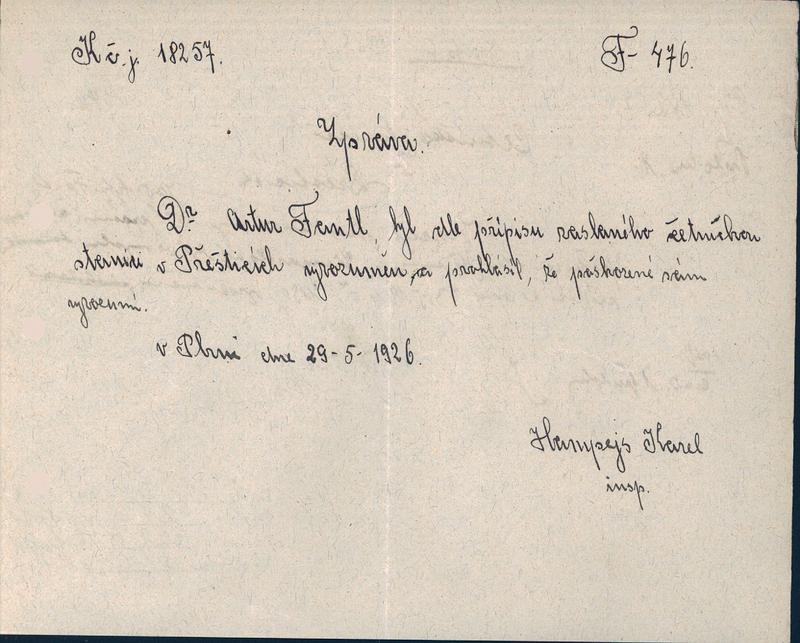 K č. j. 18257.
F- 476.
Zpráva.
Dr Artur Fantl, byl dle přípisu zaslaného četnickou
stanicí v Přešticích vyrozuměn, a prohlásil, že poškozené sám
vyrozumí.
v Plzni dne 29-5-1926.
Hampejs Karel
insp.